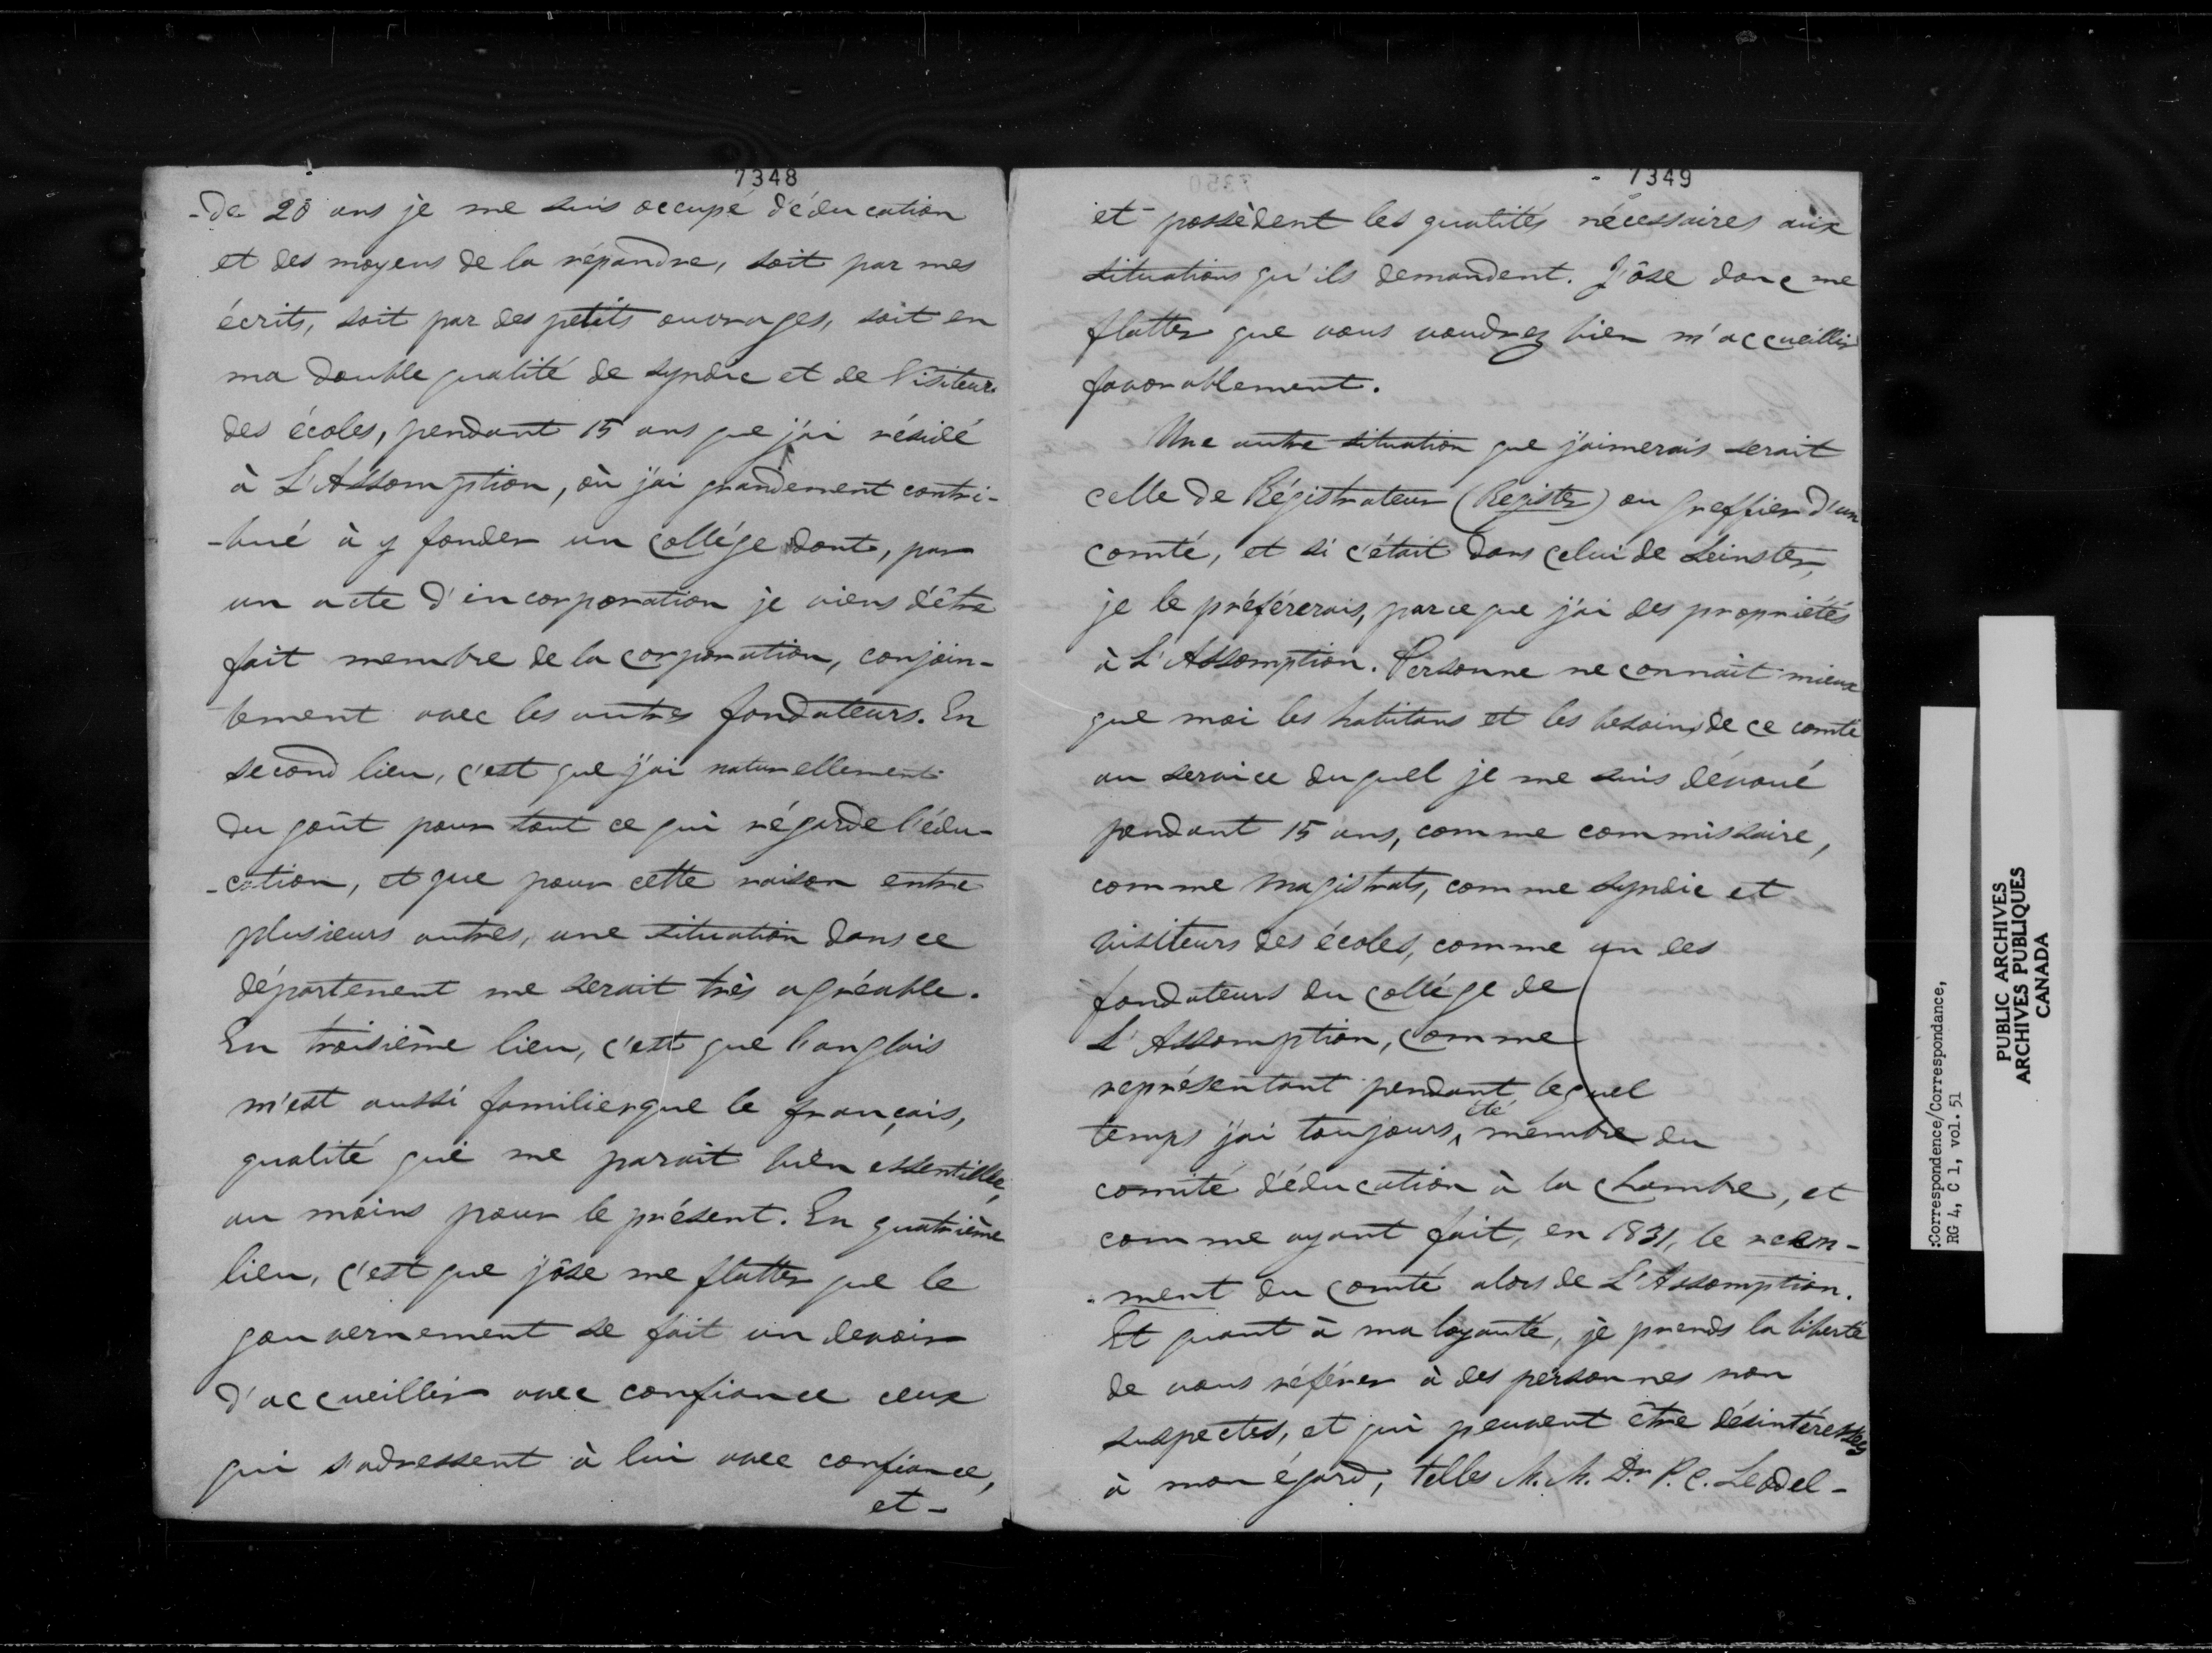 7348
-de 20 ans je me suis occupé d'éducation
et des moyens de la répandre, soit par mes
écrits, soit par des petits ouvrages, soit en
ma double qualité de syndic et de Visiteur
des écoles, pendant 15 ans que j'ai résidé
à L'Assomption, où j'ai grandement contri-
-bué à y fonder un collége dont, par
un acte d'incorporation je viens d'être
fait membre de la corporation, conjoin-
tement avec les autres fondateurs. En
second lieu, c'est que j'ai naturellement
du goût pour tout ce qui régarde l'édu-
-cation, et que pour cette raison entre
plusieurs autres, une situation dans ce
département me serait très agréable.
En troisième lieu, c'est que l'anglais
m'est aussi familier que le français,
qualité qui me parait bien essentielle,
au moins pour le présent. En quatrième
lieu, c'est que j'ôse me flatter que le
gouvernement se fait un devoir
d'accueillir avec confiance ceux
qui s'adressent à lui avec confiance,
et-
7349
et possèdent les qualités nécessaires aux
situations qu'ils demandent. J'ôse donc me
flatter que vous voudrez bien m'accueillir
favorablement.
Une autre situation que j'aimerais serait
celle de Régistrateur (Register) ou Greffier d'un
comté, et si c'était dans celui de Leinster,
je le préférerais, parce que j'ai des propriétés
à L'Assomption. Personne ne connait mieux
que moi les habitans et les besoins de ce comté
au service duquel je me suis dévoué
pendant 15 ans, comme commissaire,
comme magistrats, comme syndic et
visiteurs des écoles, comme un des
fondateurs du collége de
L'Assomption, comme
représentant pendant lequel
temps j'ai toujours été membre du
comité d'éducation à la chambre, et
comme ayant fait, en 1831, le recen-
-ment du comté alors de L'Assomption.
Et quant à ma loyauté, je prends la liberté
de vous référer à des personnes non
suspectes, et qui peuvent être désintéressées
à mon égard, telles M.M. Dr P. C. Leodel-
:Correspondence/Correspondance,
RG 4, C 1, vol. 51
PUBLIC ARCHIVES
ARCHIVES PUBLIQUES
CANADA